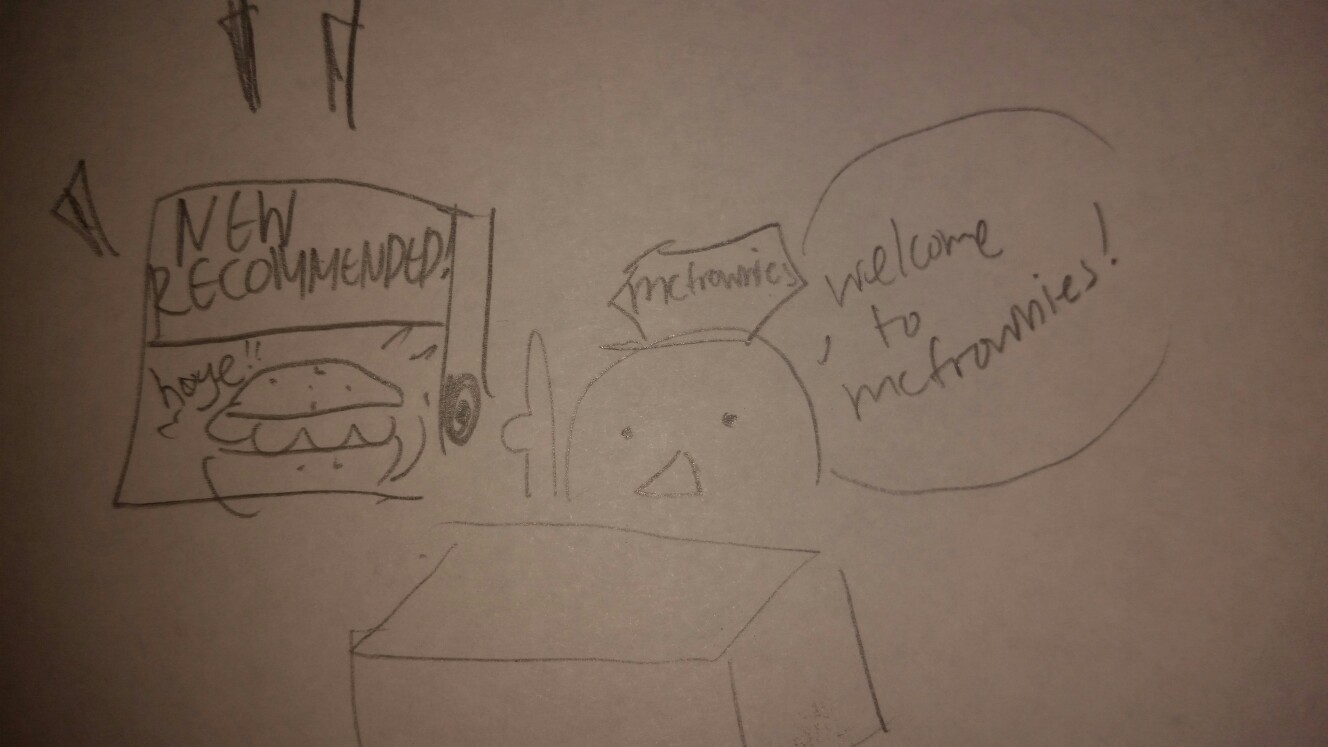 NEW
RECOMMENDED!
hoye!!
mcfrownies
welcome
to
mcfrownies!